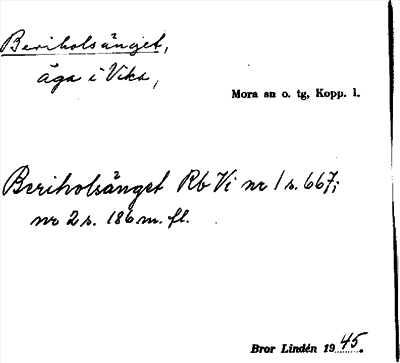 Beriholsänget,
äga i Vika,
Mora sn o. tg, Kopp. l.
Beriholsänget Rb Vi nr 1 s. 667;
nr 2 s. 186 m. fl.
Bror Lindén 1945.